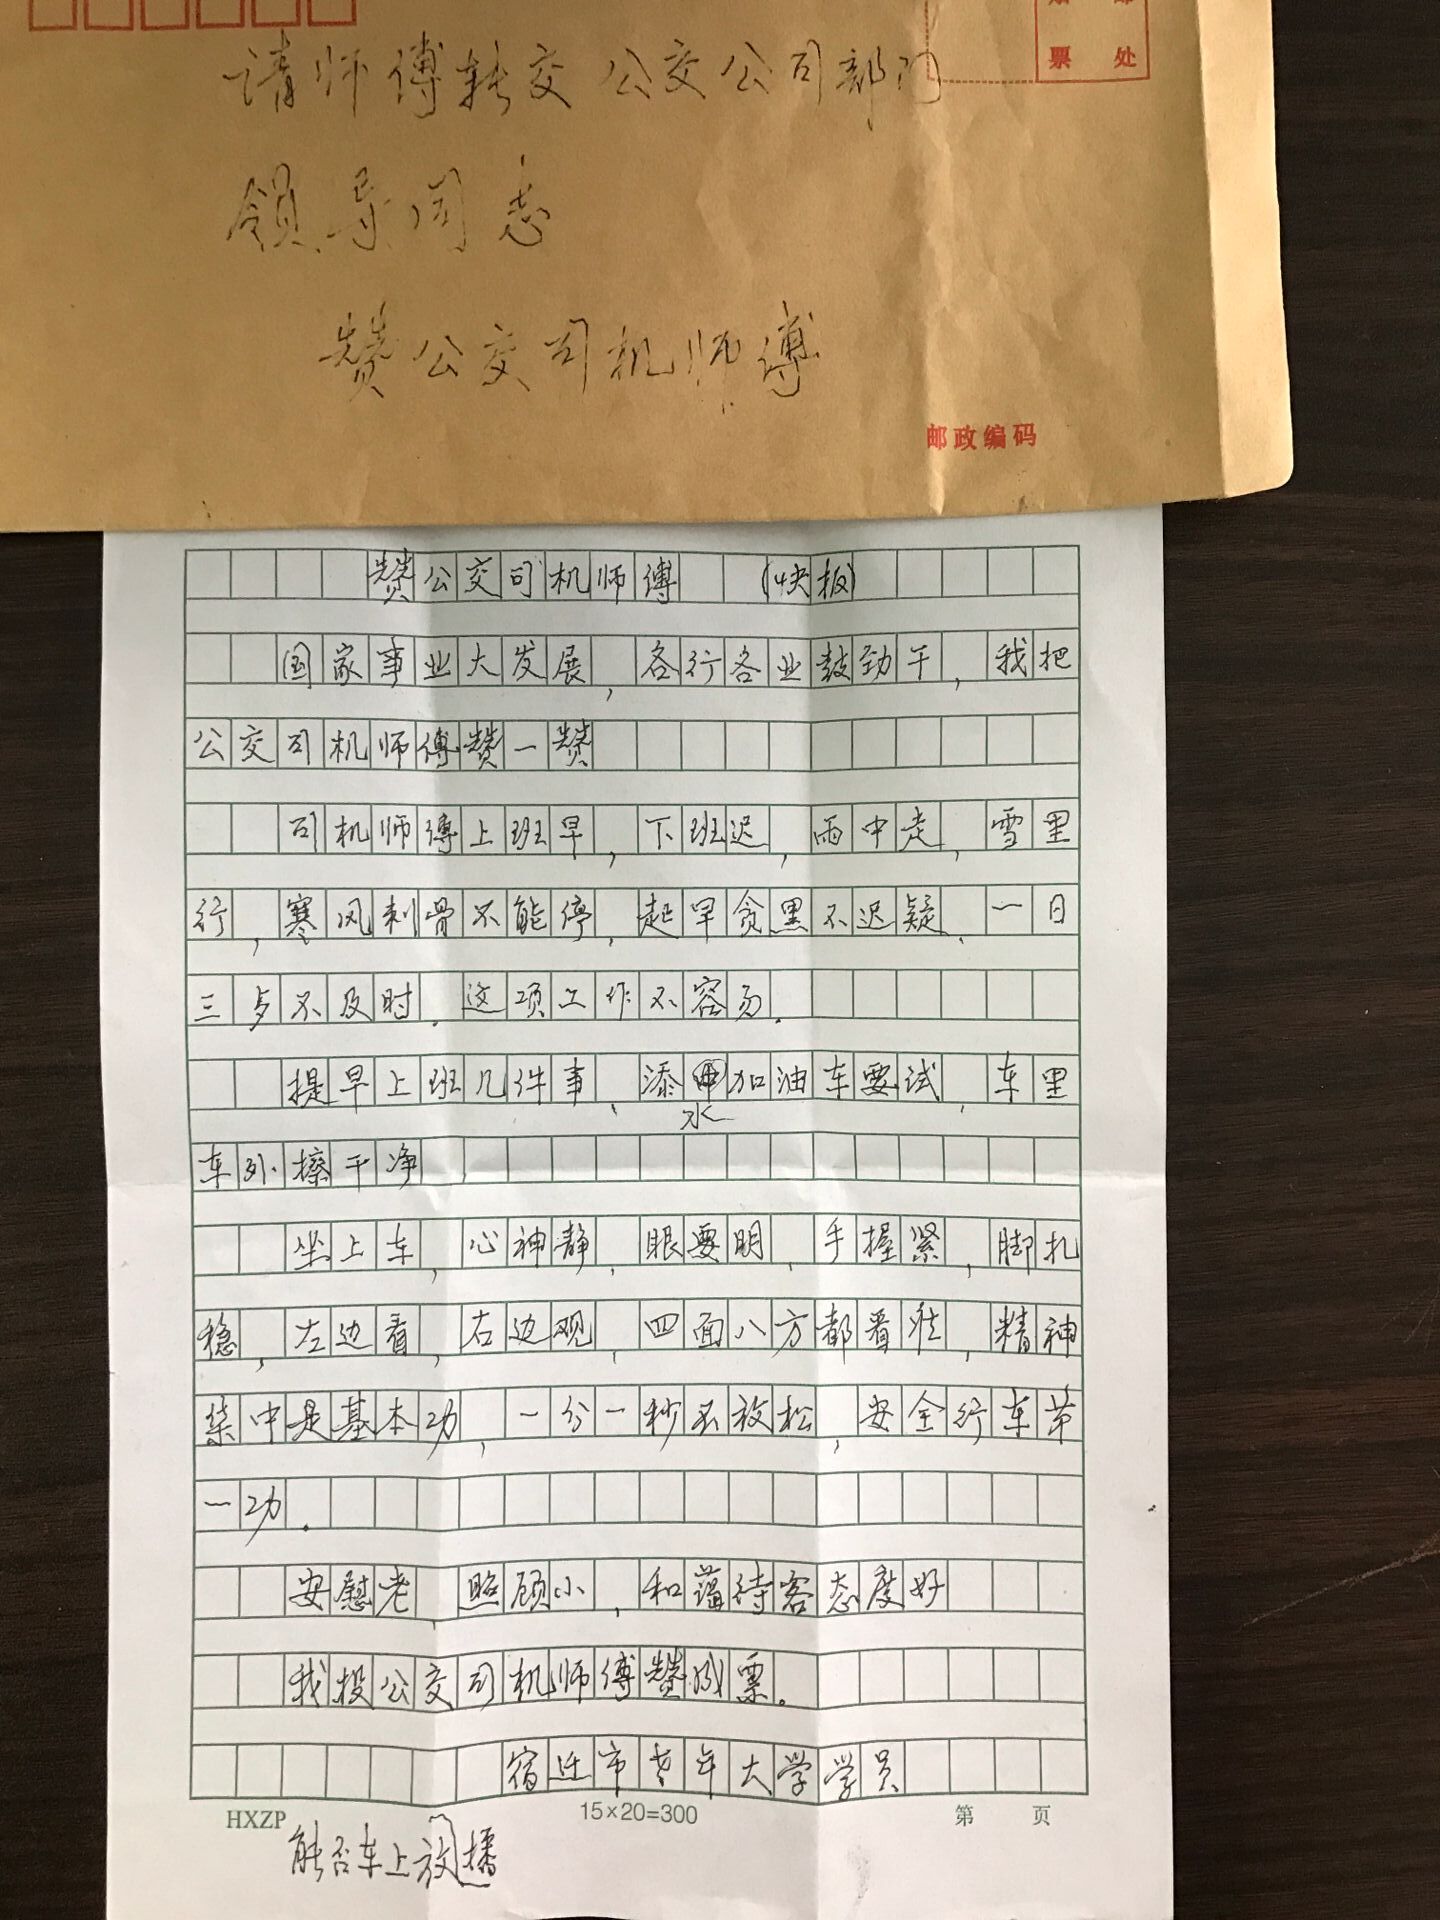 票 处
请师傅转交公交公司部门
领导同志
赞公交司机师傅
邮政编码
赞公交司机师傅 (快板)
国家事业大发展,各行各业鼓劲干,我把
公交司机师傅赞一赞
司机师傅上班早,下班迟,雨中走,雪里
行,寒风刺骨不能停,起早贪黑不迟疑、一日
三歺不及时.这项工作不容易.
提早上班几件事、添水加油车要试,车里
车外擦干净
坐上车,心神静,眼要明,手握紧,脚扎
稳,左边看,右边观,四面八方都看准,精神
集中是基本功,一分一秒不放松,安全行车第
一功.
安慰老,照顾小,和蔼待客态度好
我投公交司机师傅赞成票.
宿迁市老年大学学员
HXZP 15×20=300 第 页
能否车上放播